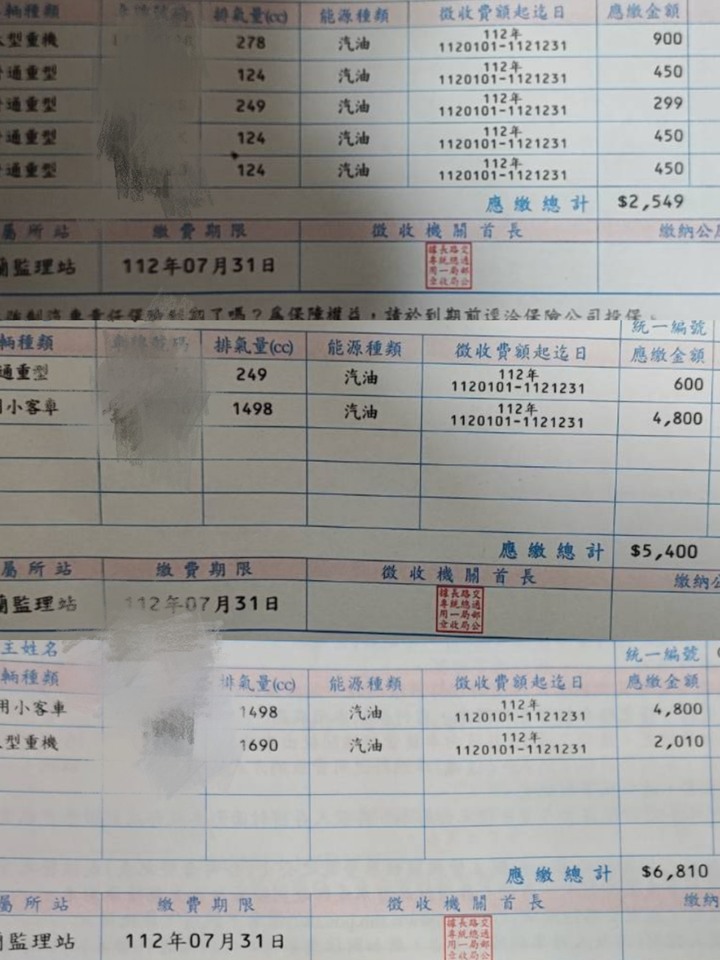 輛種類 排氣量(cc) 能源種類 徵收費額起迄日 應繳金額
型重機 278 汽油 112年 1120101-1121231 900
通重型 124 汽油 112年 1120101-1121231 450
通重型 249 汽油 112年 1120101-1121231 299
通重型 124 汽油 112年 1120101-1121231 450
通重型 124 汽油 112年 1120101-1121231 450
應繳總計 $2,549
屬所站 繳費期限 徵收機關首長 繳納公
監理站 112年07月31日
強制汽車責任保險到期了嗎？為保障權益，請於到期前逕洽保險公司投保。
統一編號
輛種類 排氣量(cc) 能源種類 徵收費額起迄日 應繳金額
通重型 249 汽油 112年 1120101-1121231 600
用小客車 1498 汽油 112年 1120101-1121231 4,800
應繳總計 $5,400
屬所站 繳費期限 徵收機關首長 繳納公
監理站 112年07月31日
主姓名 統一編號
輛種類 排氣量(cc) 能源種類 徵收費額起迄日 應繳金額
用小客車 1498 汽油 112年 1120101-1121231 4,800
型重機 1690 汽油 112年 1120101-1121231 2,010
應繳總計 $6,810
屬所站 繳費期限 徵收機關首長 繳納
監理站 112年07月31日